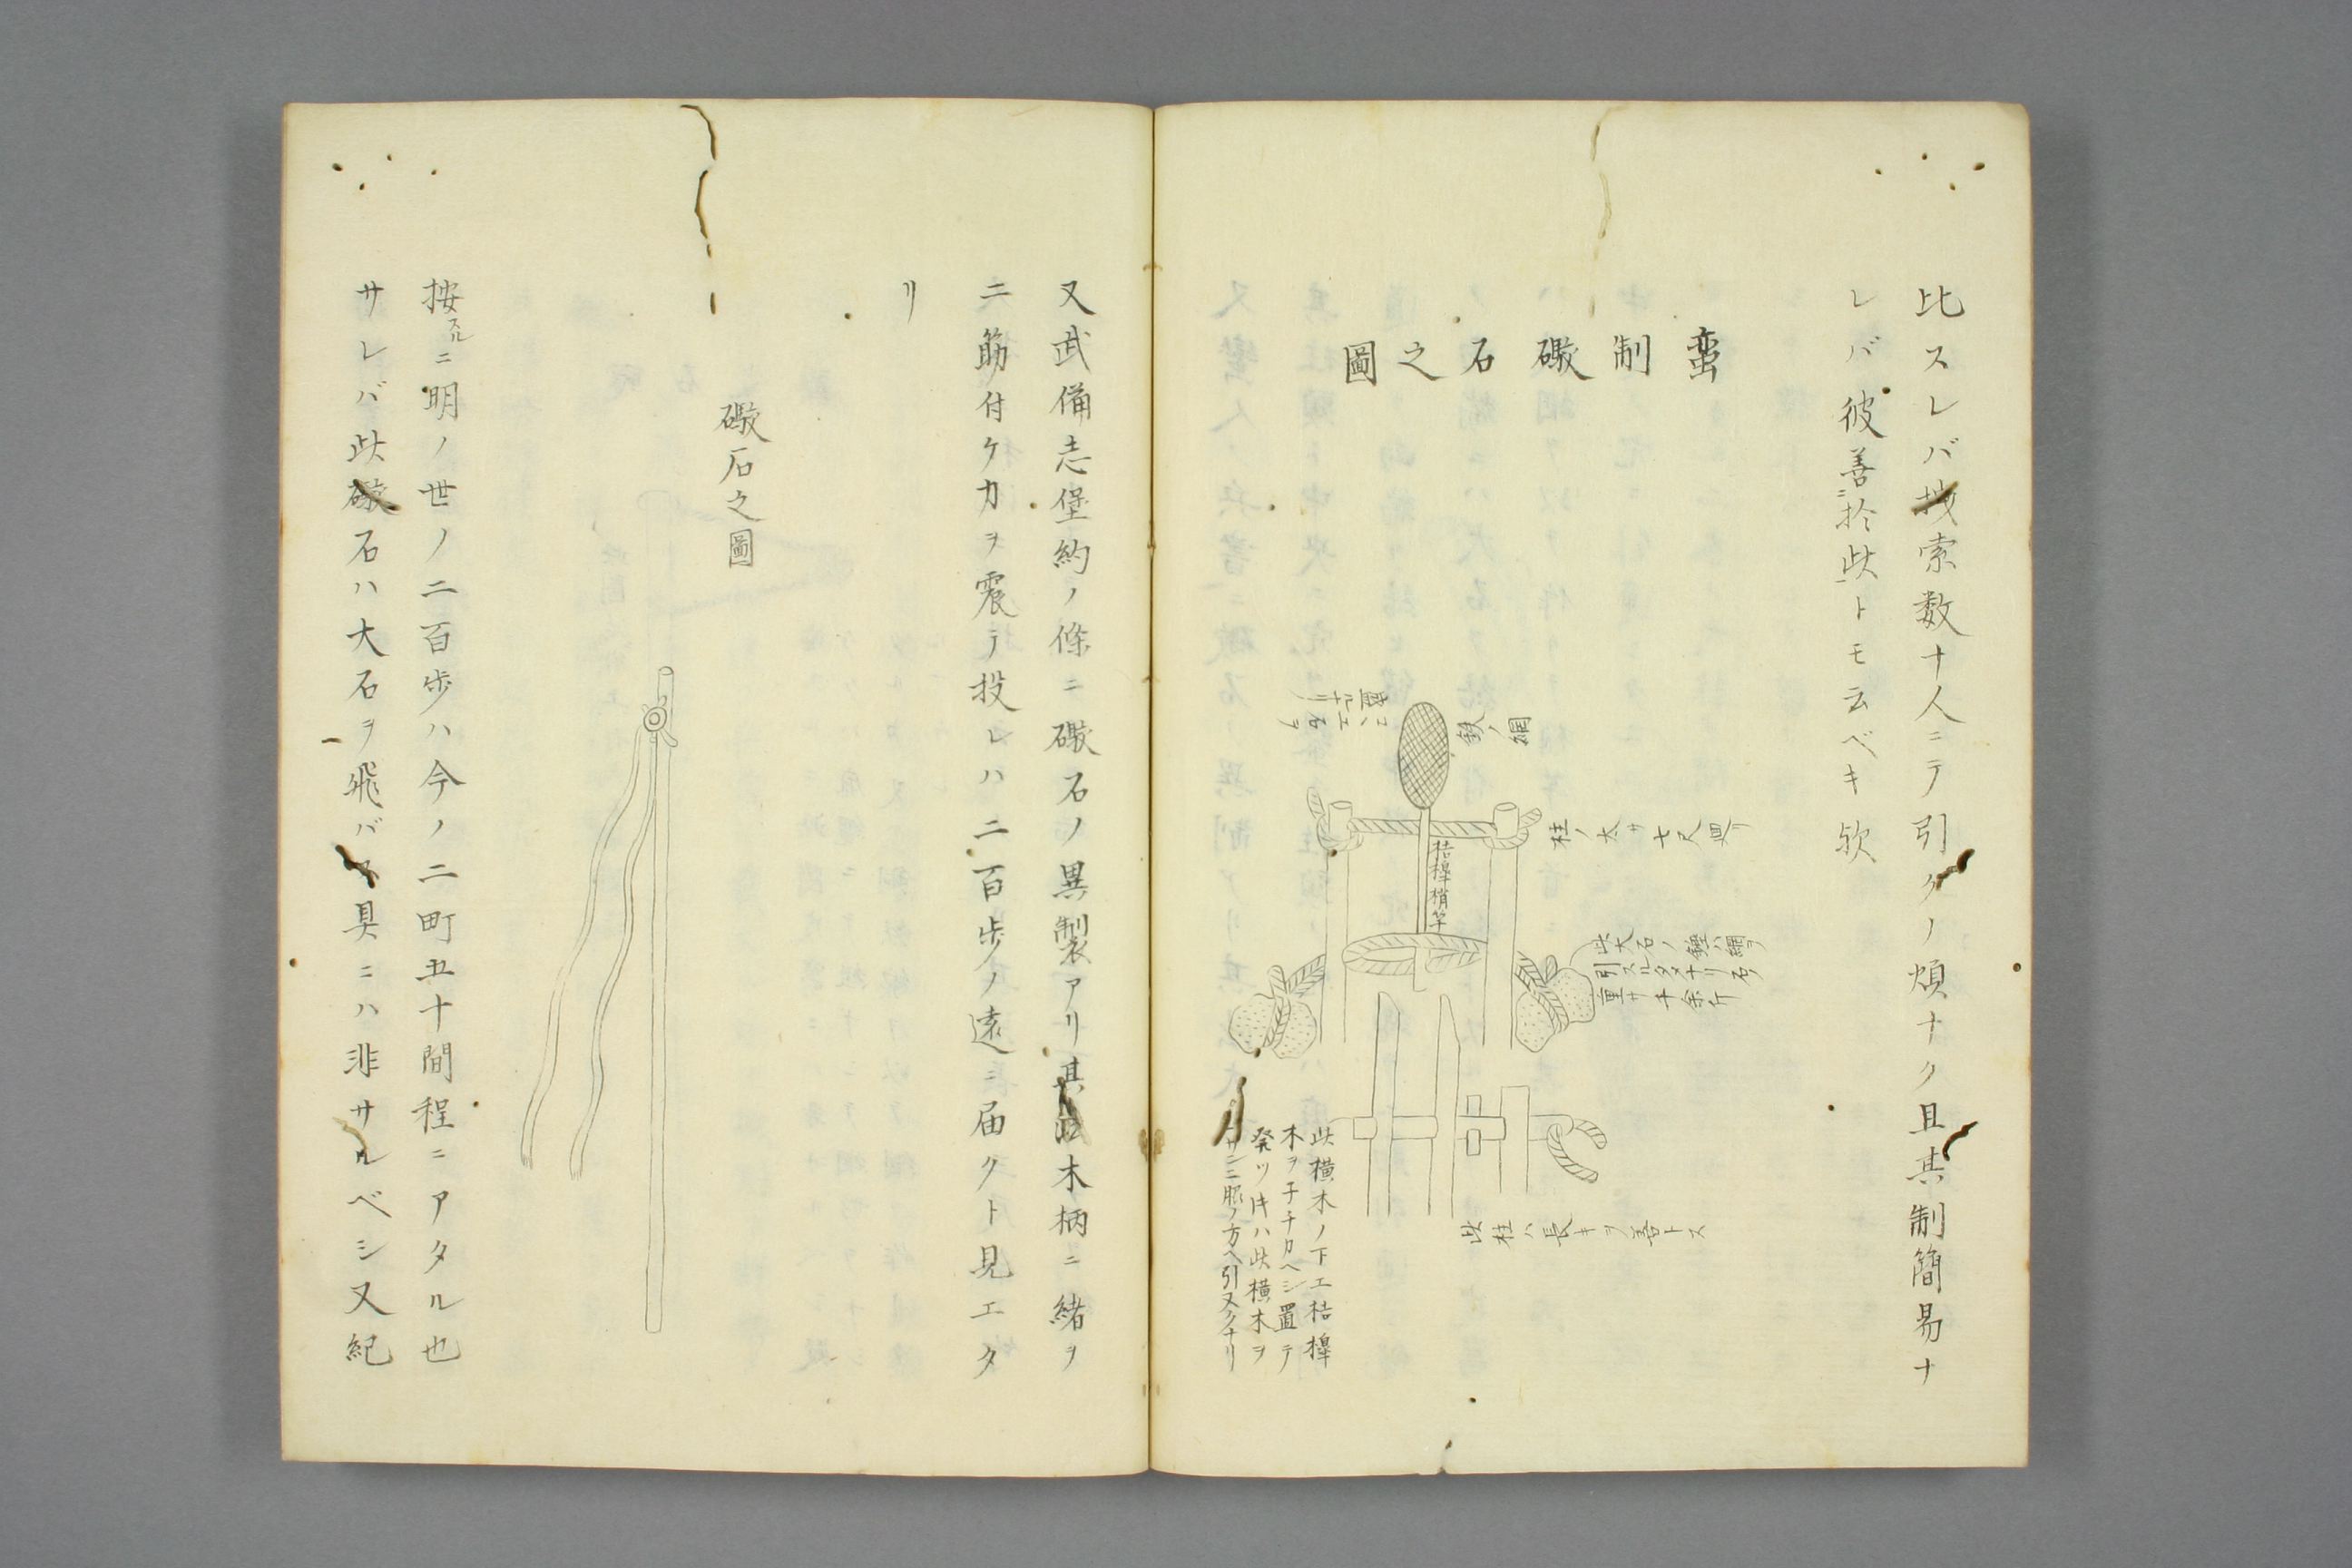 比スレバ 索数十人ニテ引クノ煩ナク且其制簡易ナ
レバ彼善於此トモ云ベキ歟
蛮制礮石之圖
鉄ノ網
柱ノ太サ七尺廻リ
桔槹梢竿
此大石ノ錘ハ網ヲ
引スルタメナリ石ノ
重サ千余斤
此柱ハ長キヲ善トス
此横木ノ下エ桔槹
木ヲ子チカヘシ置テ
発ツ時ハ此横木ヲ
ノ方ヘ引ヌクナリ
又武備志堡約ノ條ニ礮石ノ異製アリ其 木柄ニ緒ヲ
二筋付ケ力ヲ震テ投レハ二百歩ノ遠ニ届クト見エタ
リ
礮石之圖
按スルニ明ノ世ノ二百歩ハ今ノ二町五十間程ニアタル也
サレバ此礮石ハ大石ヲ飛バス具ニハ非サルベシ又紀